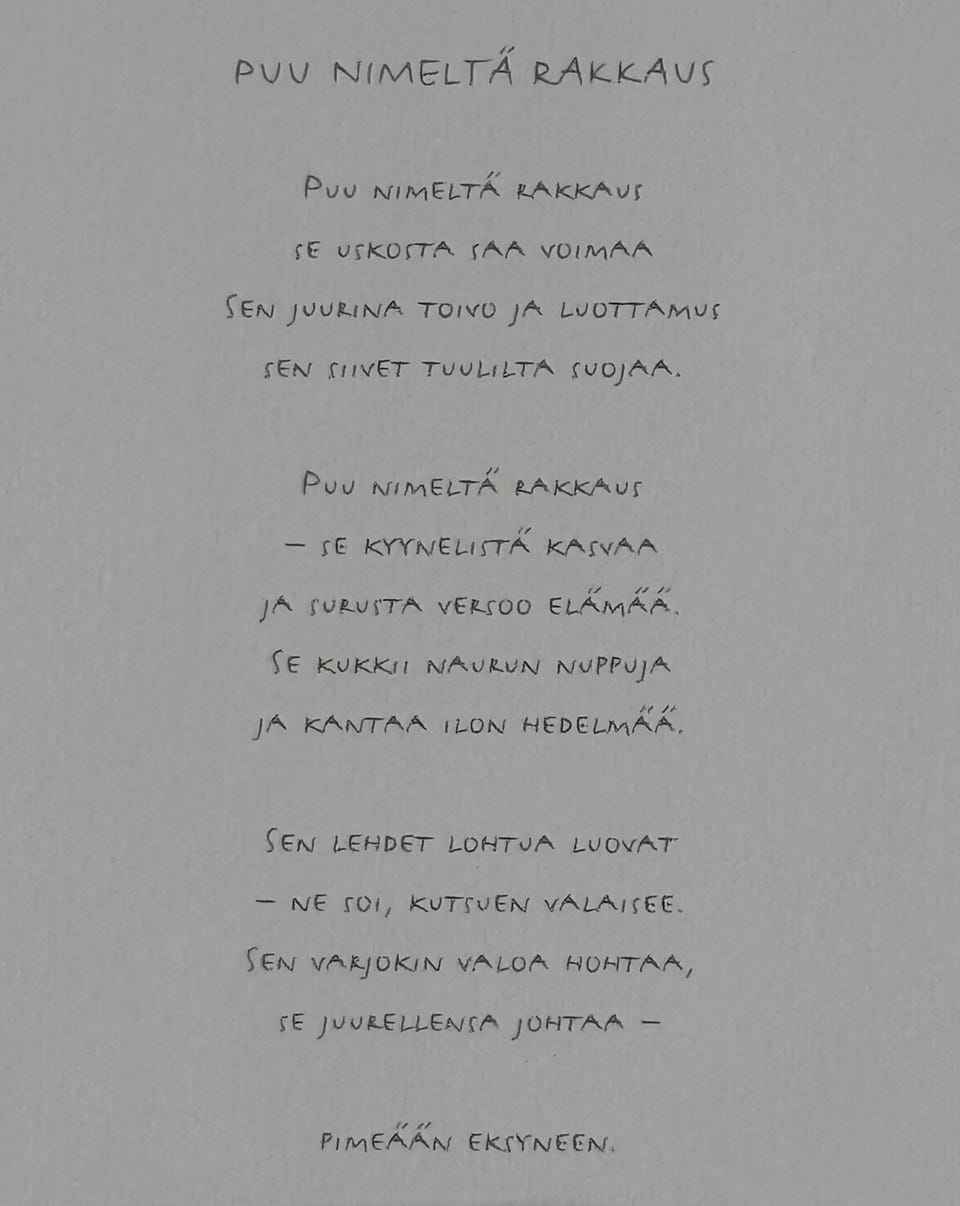 PUU NIMELTÄ RAKKAUS
PUU NIMELTÄ RAKKAUS
SE USKOSTA SAA VOIMAA
SEN JUURINA TOIVO JA LUOTTAMUS
SEN SIIVET TUULILTA SUOJAA.
PUU NIMELTÄ RAKKAUS
– SE KYYNELISTÄ KASVAA
JA SURUSTA VERSOO ELÄMÄÄ.
SE KUKKII NAURUN NUPPUJA
JA KANTAA ILON HEDELMÄÄ.
SEN LEHDET LOHTUA LUOVAT
– NE SOI, KUTSUEN VALAISEE.
SEN VARJOKIN VALOA HOHTAA,
SE JUURELLENSA JOHTAA –
PIMEÄÄN EKSYNEEN.